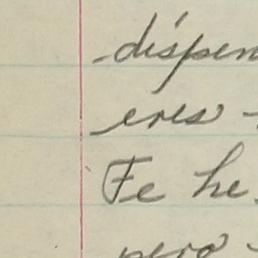 dispen
eres -
Fe he
pero -